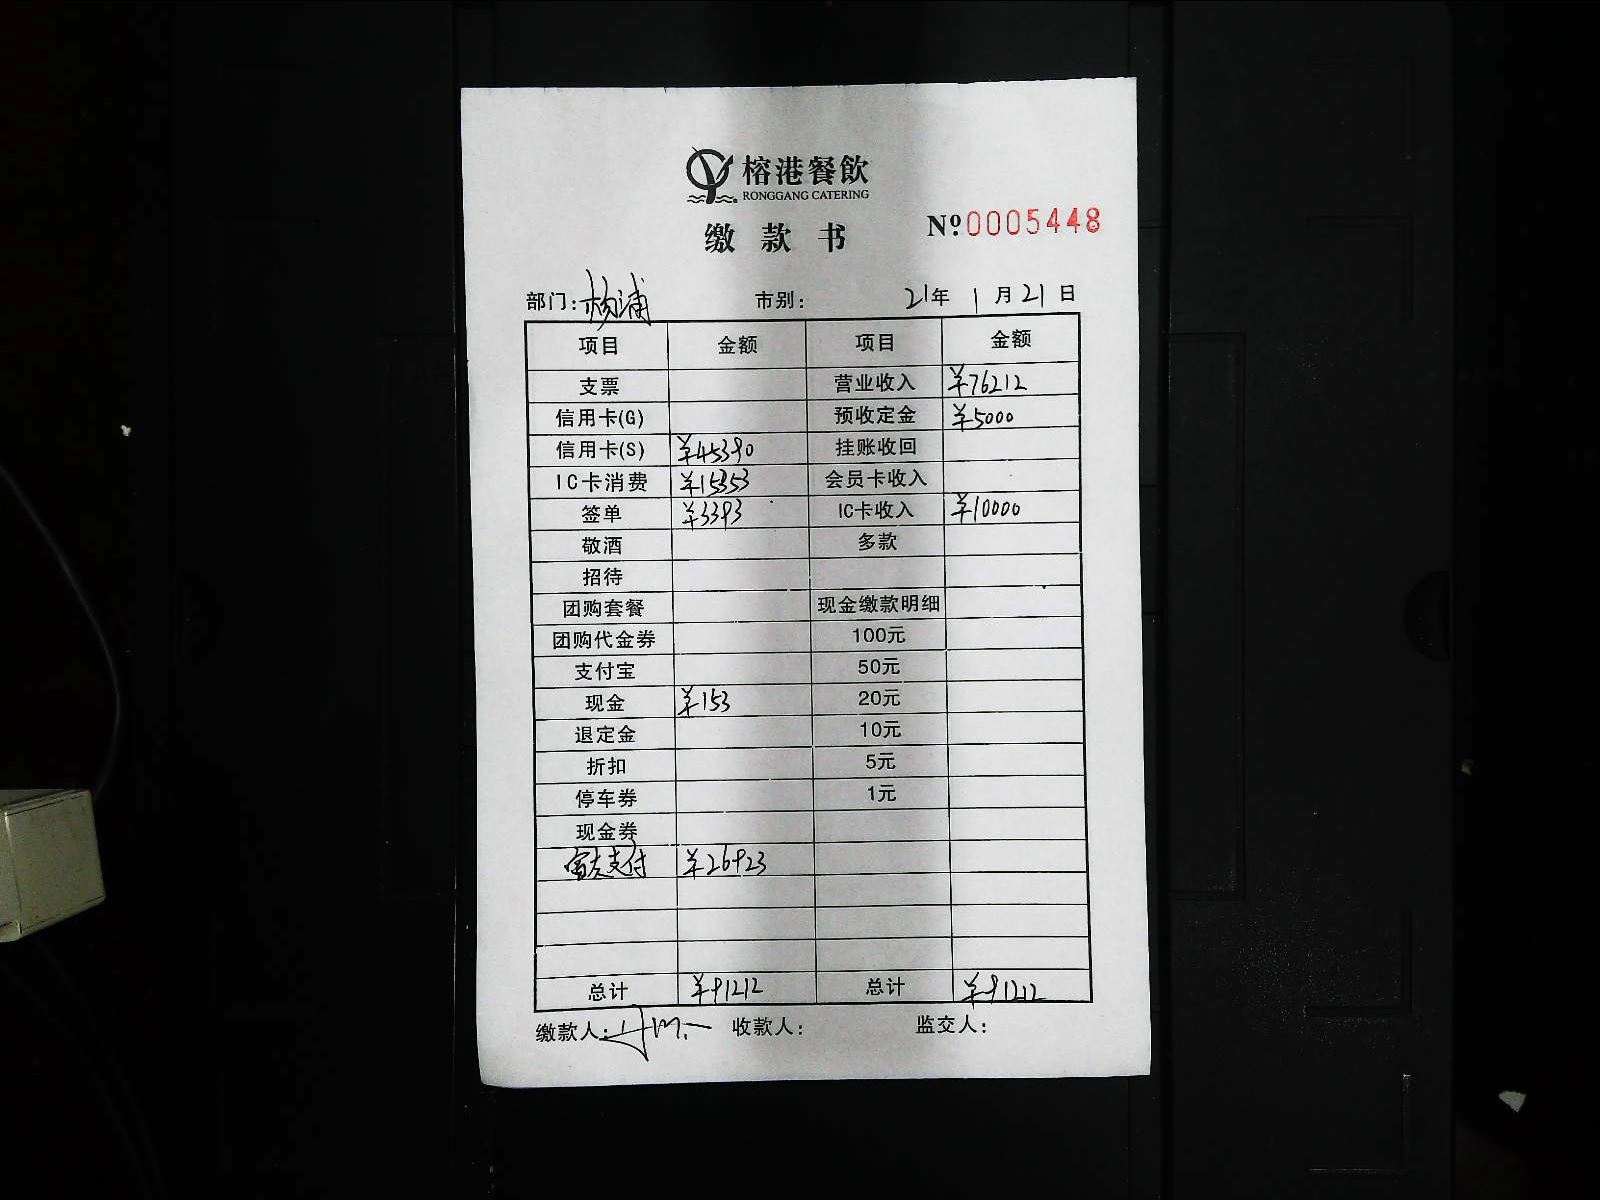 榕港餐飲
RONGGANG CATERING
缴款书 Nº.0005448
部门: 杨浦 市别: 21年 1月21日
项目 金额 项目 金额
支票 营业收入 ¥76212
信用卡(G) 预收定金 ¥5000
信用卡(S) ¥45390 挂账收回
IC卡消费 ¥15353 会员卡收入
签单 ¥3393 IC卡收入 ¥10000
敬酒 多款
招待
团购套餐 现金缴款明细
团购代金券 100元
支付宝 50元
现金 ¥153 20元
退定金 10元
折扣 5元
停车券 1元
现金券
富友支付 ¥26923
总计 ¥91212 总计 ¥91212
缴款人: 收款人: 监交人: